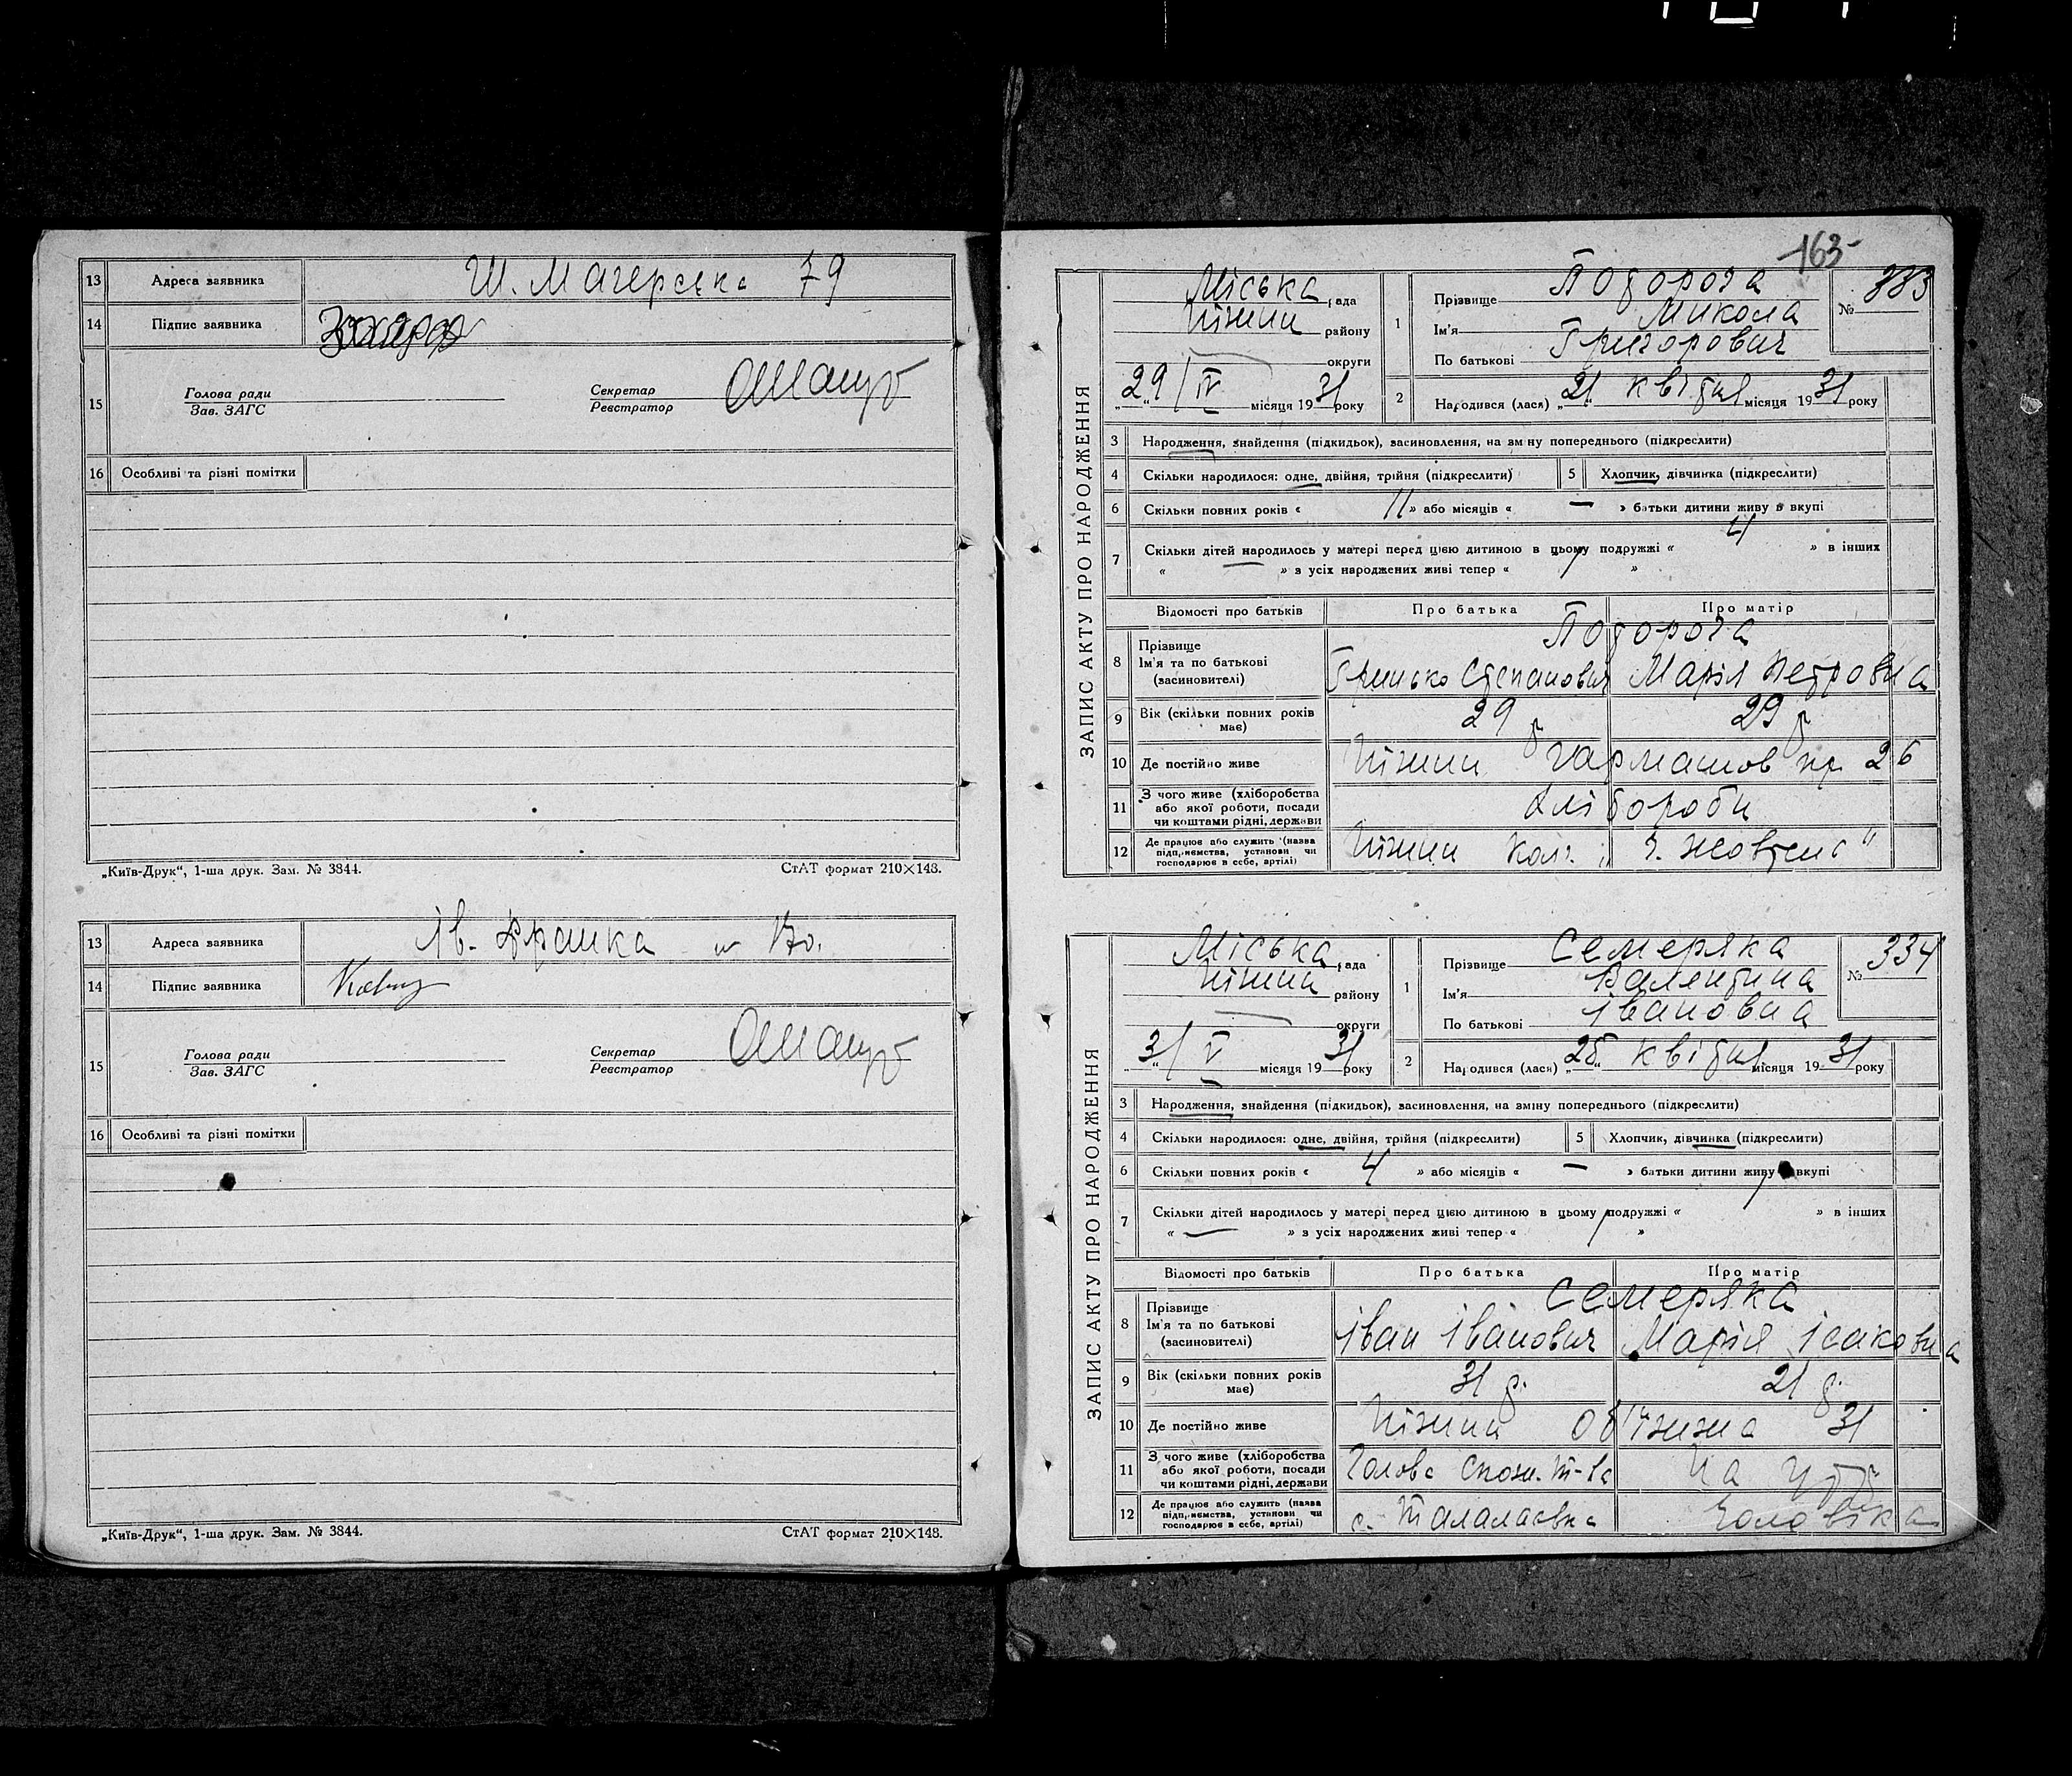 13 Адреса заявника Ш. Магерська 79
14 Підпис заявника
15 Голова ради
Зав. ЗАГС
Секретар
Реєстратор
16 Особливі та різні помітки
„Київ-Друк“, 1-ша друк. Зам. № 3844. СтАТ формат 210×148.
13 Адреса заявника Ів. Франка
14 Підпис заявника
15 Голова ради
Зав. ЗАГС
Секретар
Реєстратор
16 Особливі та різні помітки
„Київ-Друк“, 1-ша друк. Зам. № 3844. СтАТ формат 210×148.
163
ЗАПИС АКТУ ПРО НАРОДЖЕННЯ
Міська рада
Ніжин району
округи
„29/IV місяця 1931 року
1 Прізвище Подорога
Ім'я Микола
По батькові Григорович
№ 333
2 Народився (лася) „21“ квітня місяця 1931 року
3 Народження, знайдення (підкидьок), засиновлення, на зміну попереднього (підкреслити)
4 Скільки народилося: одне, двійня, трійня (підкреслити) 5 Хлопчик, дівчинка (підкреслити)
6 Скільки повних років « 11 » або місяців « — » батьки дитини живу в вкупі
7 Скільки дітей народилось у матері перед цією дитиною в цьому подружжі « 4 » в інших
« — » з усіх народжених живі тепер « »
Відомості про батьків Про батька Про матір
8 Прізвище Подорога
Ім'я та по батькові Гринько Степанович Марія Петровна
(засиновителі)
9 Вік (скільки повних років має) 29 р 29 р
10 Де постійно живе Ніжин Гармашов пр. 26
11 З чого живе (хліборобства хлібороби
або якої роботи, посади
чи коштами рідні, держави
12 Де працює або служить (назва Ніжин Кол. „ Жовтень“
підприємства, установи чи
господарює в себе, артілі)
ЗАПИС АКТУ ПРО НАРОДЖЕННЯ
Міська рада
Ніжин району
округи
„3/V місяця 1931 року
1 Прізвище Семеряка
Ім'я Валентина
По батькові Івановна
№ 334
2 Народився (лася) „25“ квітня місяця 1931 року
3 Народження, знайдення (підкидьок), засиновлення, на зміну попереднього (підкреслити)
4 Скільки народилося: одне, двійня, трійня (підкреслити) 5 Хлопчик, дівчинка (підкреслити)
6 Скільки повних років « 4 » або місяців « — » батьки дитини живу вкупі
7 Скільки дітей народилось у матері перед цією дитиною в цьому подружжі « 1 » в інших
« — » з усіх народжених живі тепер « 1 »
Відомості про батьків Про батька Про матір
8 Прізвище Семеряка
Ім'я та по батькові Іван Іванович Марія Ісаковна
(засиновителі)
9 Вік (скільки повних років має) 31 р. 21 р.
10 Де постійно живе Ніжин Об'їзжа 31
11 З чого живе (хліборобства Голова Спож. т-ва На утр
або якої роботи, посади
чи коштами рідні, держави
12 Де працює або служить (назва с. Талалаєвка Чоловіка
підприємства, установи чи
господарює в себе, артілі)